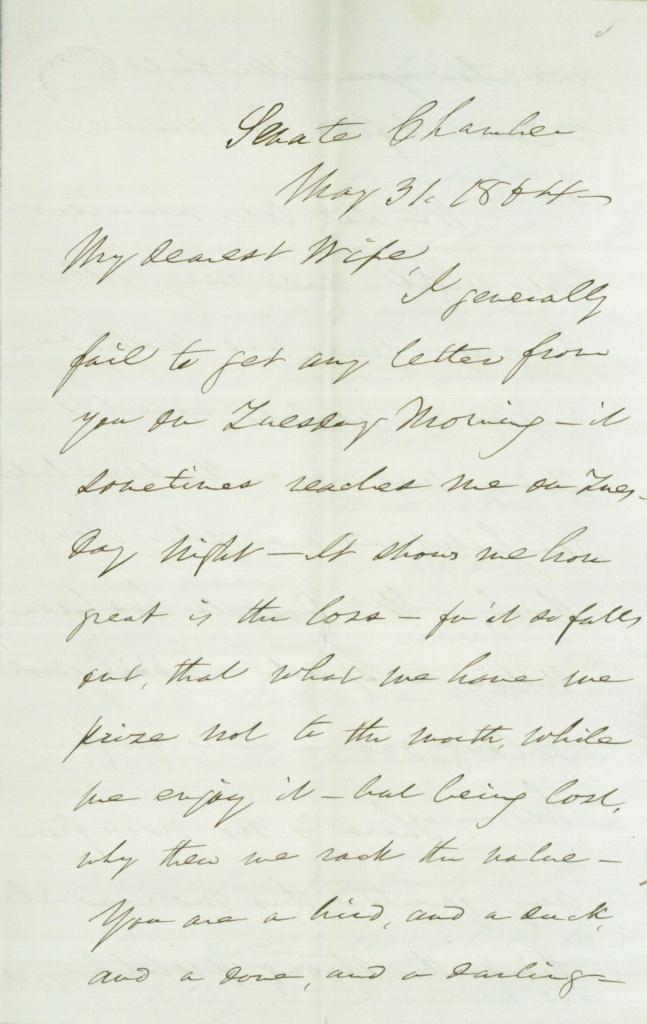 Senate Chamber
May 31. 1864
My dearest Wife
I generally
fail to get any letter from
you on Tuesday Morning - it
sometimes reaches me on Tues-
day night - It shows me how
great is the loss - for it so falls
out, that what we have we
prize not to the worth, while
we enjoy it - but being lost,
why then we rack the value -
You are a bird, and a duck,
and a dove, and a darling -